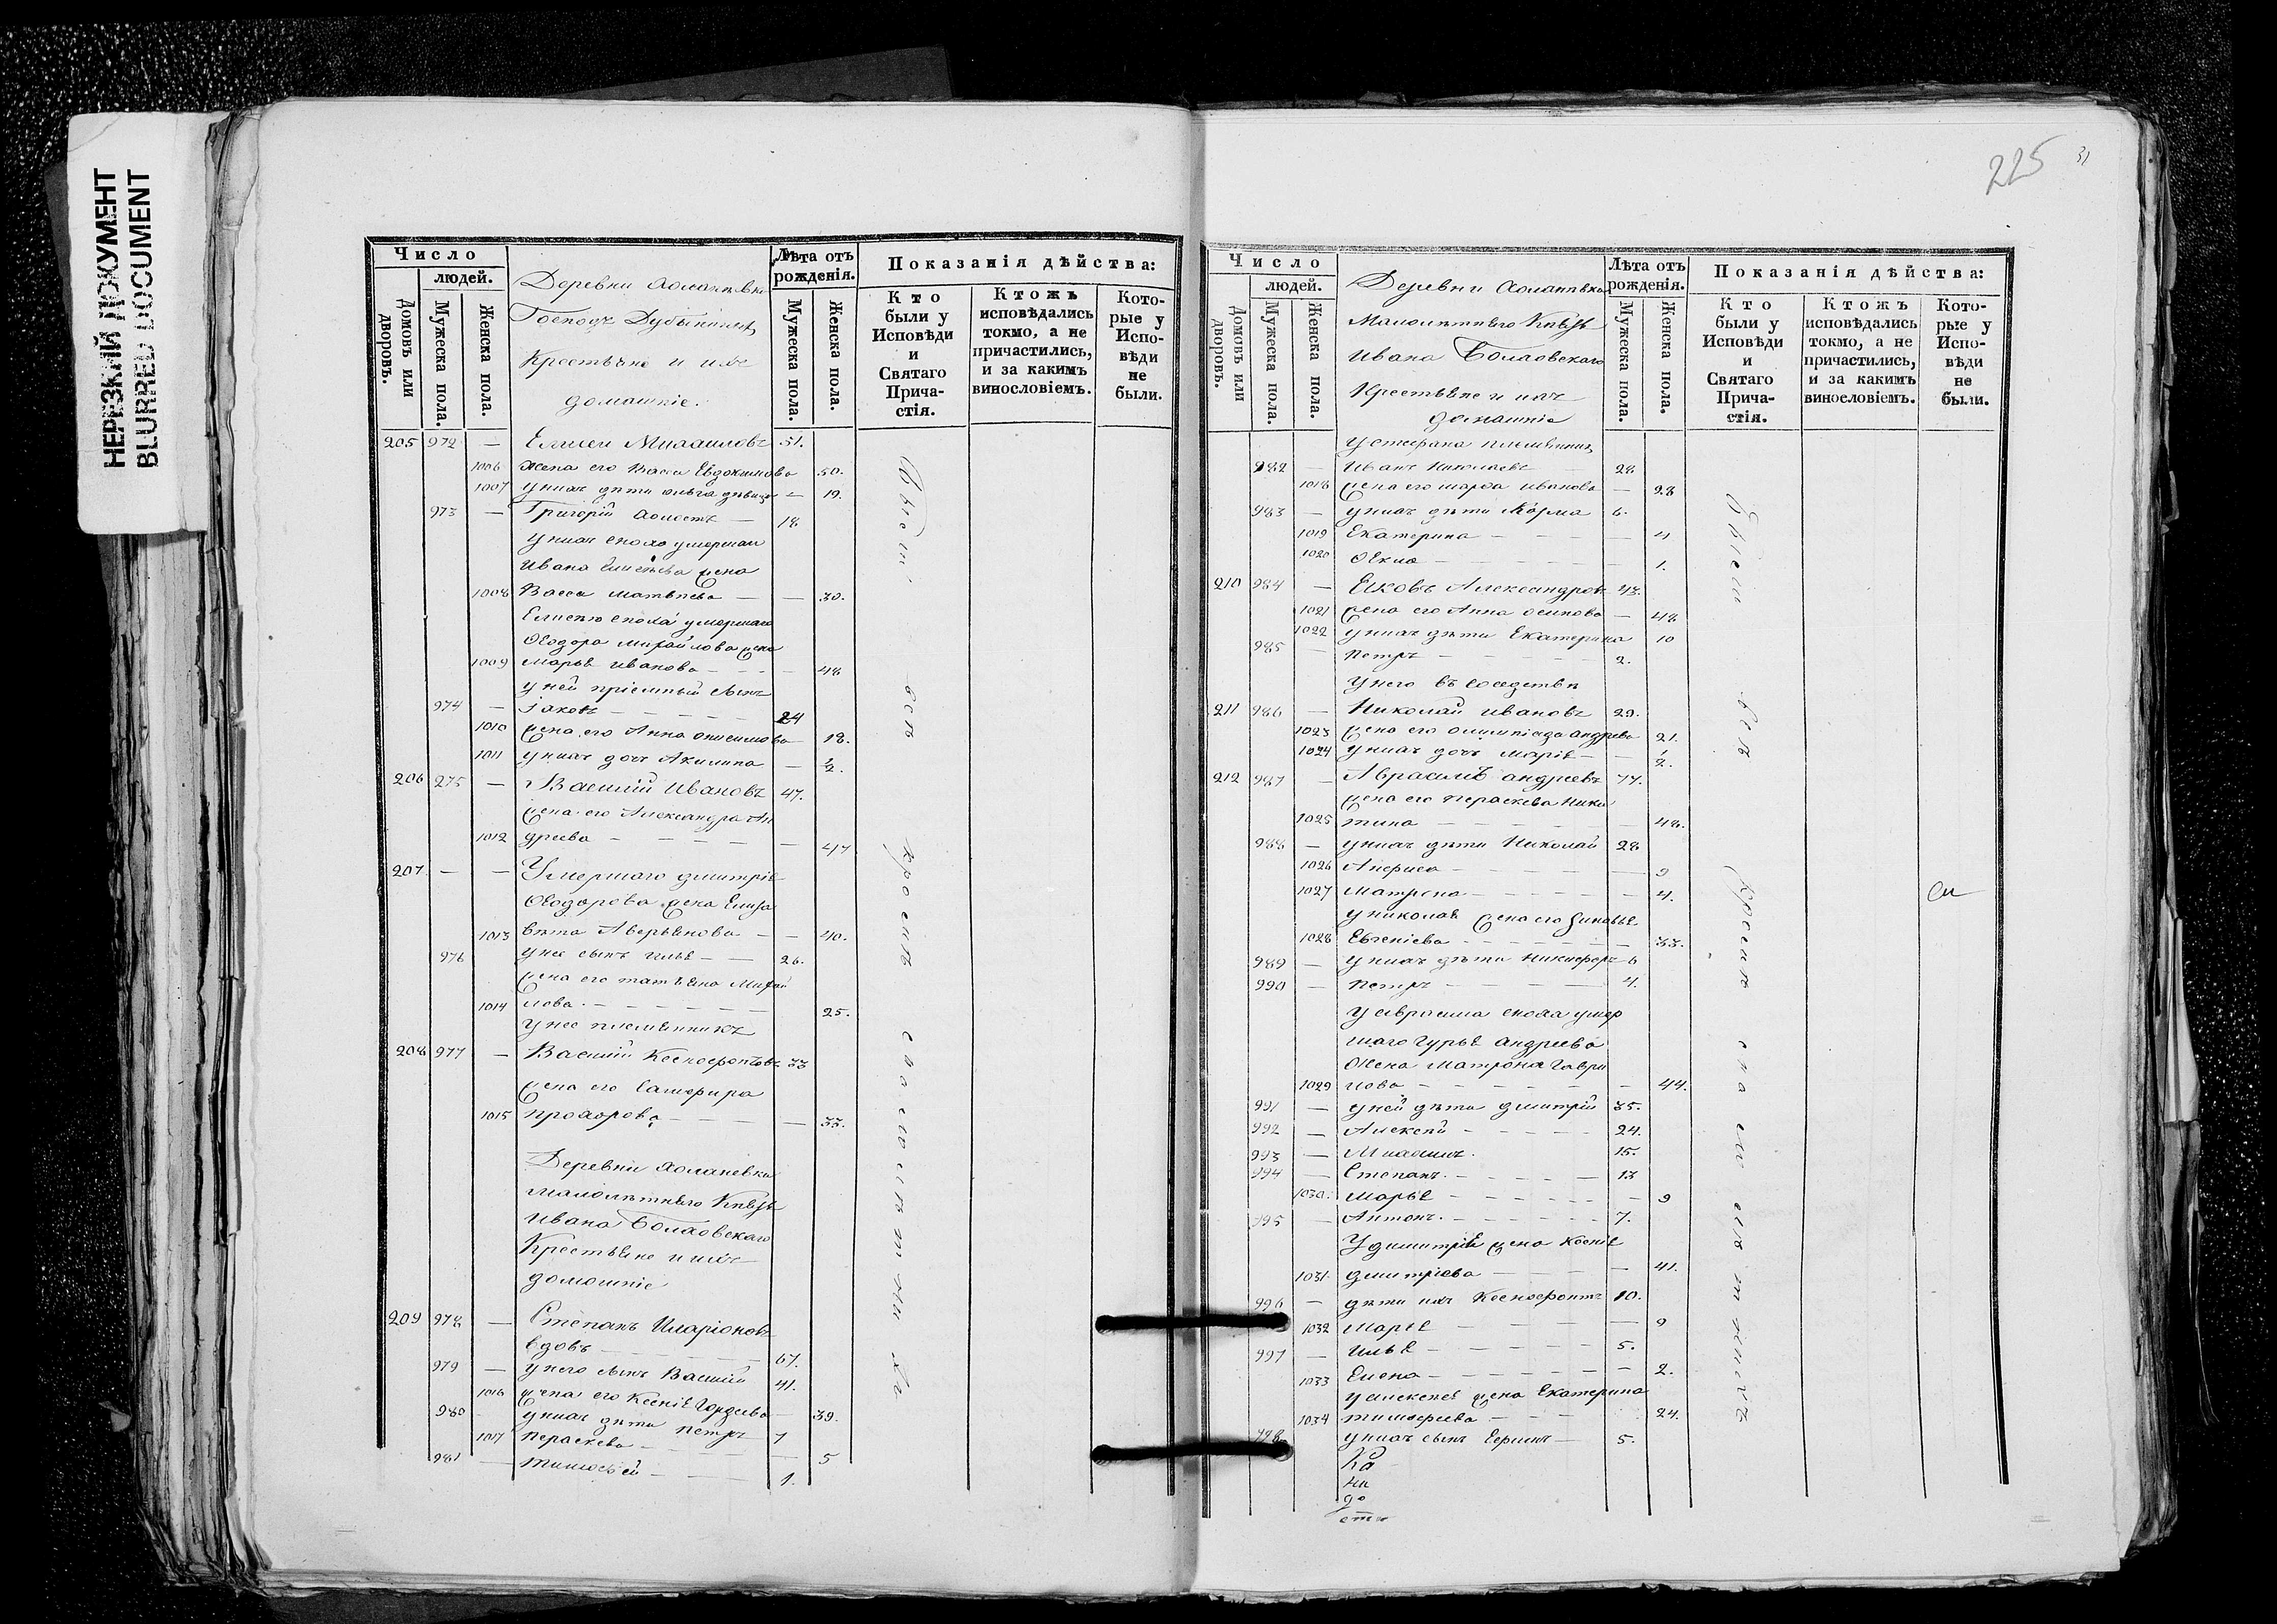 НЕРЕЗКИЙ ДОКУМЕНТ
BLURRED DOCUMENT
Число
людей.
Домовъ или дворовъ.
Мужеска пола.
Женска пола.
Деревни
Господъ
Крестьяне и ихъ
домашніе.
Лѣта отъ рожденія.
Мужеска пола.
Женска пола.
Показанія дѣйства:
Кто были у Исповѣди и Святаго Причастія.
Ктожъ исповѣдались токмо, а не причастились, и за какимъ винословіемъ.
Которые у Исповѣди не были.
205 972 — Елисей Михаиловъ 51.
1006 жена его Васса Евдокимова 50.
1007 у нихъ дѣти Ольга дѣвица — 19.
973 — Григорій холостъ — 18
у нихъ снохи умершаи
Ивана Елисѣева жена
1008 Васса Матвѣева — — 30.
Елисѣю сноха умершаго
Ѳеодора Михайлова жена
1009 Марья Иванова — — — 48
у ней пріемный сынъ
974 — Іаковъ — — — — 24
1010 жена его Анна Онисимова 18.
1011 у нихъ дочь Акилина — ½.
206 975 — Василій Ивановъ 47.
жена его Александра Ан
1012 дреева — — — — 47
207 — — Умершаго Дмитрія
Ѳеодорова жена Елиза
1013 вѣта Аверьянова — — 40.
976 у нее сынъ Илья — — 26.
жена его Татьяна Михай
1014 лова — — — — 25.
у нее племянникъ
208 977 — Василій Ксенофонтовъ 33
жена его Сапфира
1015 Прохорова — — — 33.
Деревни
малолѣтнаго Князя
Ивана Болховскаго
Крестьяне и ихъ
домашніе
209 978 — Степанъ Иларіоновъ
вдовъ — — — — 67.
979 — у него сынъ Василій 41.
1016 жена его Ксенія Гордѣева — 39.
980 у нихъ дѣти Петръ 7
1017 Параскева — — — 5
981 — Тимоѳей — — 1.
Всѣ кромѣ малолѣтнихъ
225
31
Число
людей.
Домовъ или дворовъ.
Мужеска пола.
Женска пола.
Деревни
Малолѣтнаго Князя
Ивана Болховскаго
Крестьяне и ихъ
домашніе
Лѣта отъ рожденія.
Мужеска пола.
Женска пола.
Показанія дѣйства:
Кто были у Исповѣди и Святаго Причастія.
Ктожъ исповѣдались токмо, а не причастились, и за какимъ винословіемъ.
Которые у Исповѣди не были.
у Стефана племянникъ
982 — Иванъ Николаевъ 28
1018 жена его Марѳа Иванова — 28
983 — у нихъ дѣти 6.
1019 Екатерина — — — — 4
1020 — — — — 1.
210 984 — Яковъ Александровъ 43.
1021 жена его Анна Осипова — 48
1022 у нихъ дѣти Екатерина 10
985 — Петръ — — — — 2.
у него въ сосѣдствѣ
211 986 — Николай Ивановъ 29.
1023 жена его Олимпіада Андреева 21.
1024 у нихъ дочь Марія — — ½.
212 987 — Авраамъ Андреевъ 77.
жена его Параскева Ники
1025 тина — — — — 48.
988 — у нихъ дѣти Николай 28
1026 Анфиса — — — — 9
1027 Матрона — — — — 4.
у Николая жена его Зиновья
1028 Евгеніева — — — — 33.
989 — у нихъ дѣти Никифоръ 6
990 — Петръ — — — 4.
у Авраама сноха умер
шаго Гурья Андреева
жена Матрона Гаври
1029 лова — — — — 44.
991 — у ней дѣти Дмитрій 35.
992 — Алексѣй — — — 24.
993 — 15.
994 — Степанъ — — — 13
1030. Марья — — — — 9
995 — Антонъ — — — 7.
У Димитрія жена Ксенія
1031. Дмитріева — — — — 41.
996 — дѣти ихъ Ксенофонтъ 10.
1032 Марья — — — — 9
997 — Илья — — — — 5.
1033 Елена — — — — 2.
у Алексѣя жена Екатерина
1034 Тимофеева — — — 24.
998 у нихъ сынъ — 5.
Всѣ кромѣ малолѣтнихъ